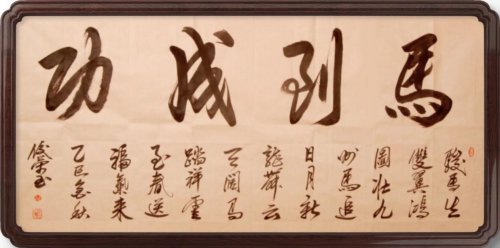 馬到成功
駿馬生
雙翼鴻
圖壯九
州馬追
日月新
龍舞云
天闊馬
踏祥雲
至春送
福氣来
乙巳金秋